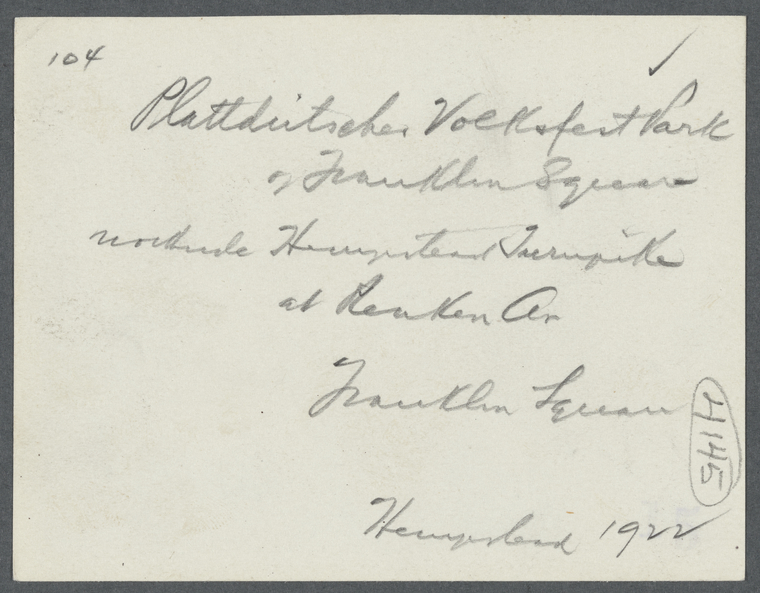 104
Plattdeutscher Volksfest Park
of Franklin Square
northside Hempstead Turnpike
at Renken Av
Franklin Square
4145
Hempstead 1922